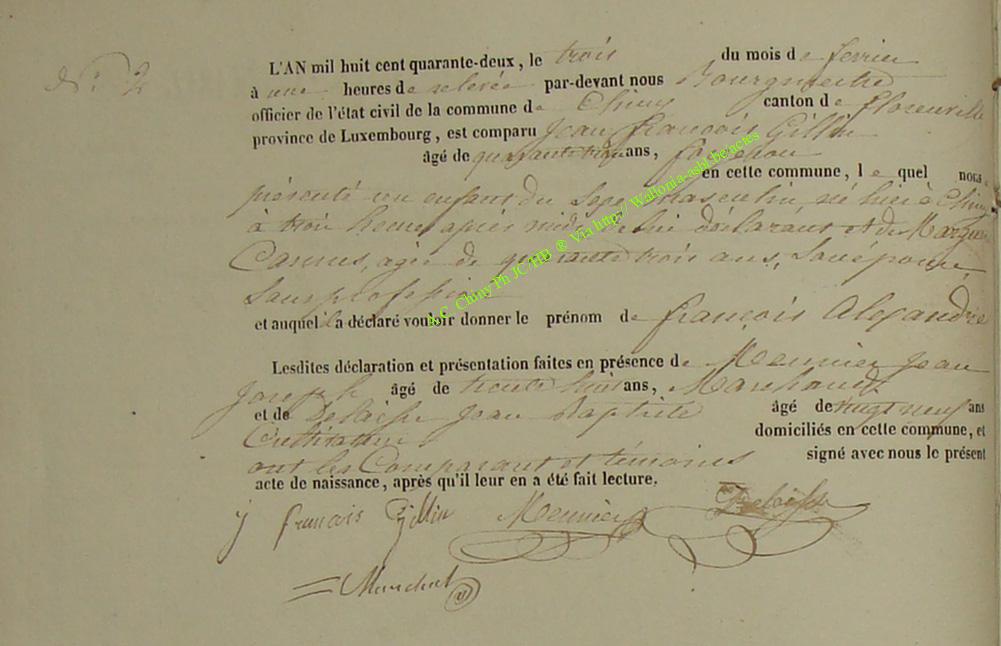 n° 2
L'AN mil huit cent quarante-deux, le trois du mois de fevrier
à une heures de relevée par-devant nous Bourgmestre
officier de l'état civil de la commune de Chiny canton de florenville
province de Luxembourg, est comparu Jean françois Gillin
âgé de quarante trois ans,
en cette commune, le quel nous a
présenté un enfant du Sexe masculin, né hier à Chiny
à trois heures après midi de lui déclarant et de Margue
Cannus, agée de quarante trois ans, Son épouse
Sans profession
et auquel il a déclaré vouloir donner le prénom de françois Alexandre
Lesdites déclaration et présentation faites en présence de Meunier Jean
Joseph âgé de trente huit ans, Marchand
et de Jean Baptiste âgé de vingt neuf ans
Cultivateur domiciliés en cette commune, et
ont les Comparant et témoins signé avec nous le présent
acte de naissance, après qu'il leur en a été fait lecture.
j françois Gillin Meunier
Marchal
A.C. Chiny Ph JC/HB ® Via http:// Wallonia-asbl.be/actes